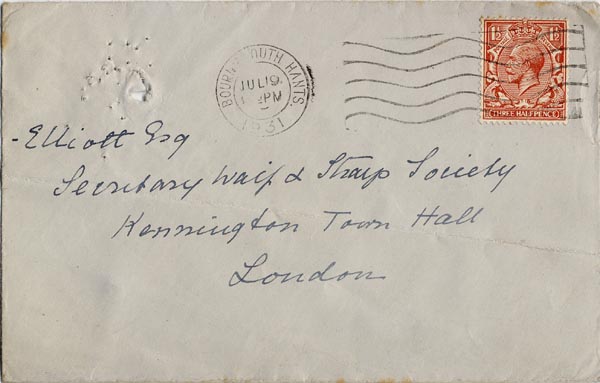 BOURNEMOUTH HANTS.
JUL 19
PM
1931
1½ 1½
THREE HALFPENCE
- Elliott Esq
Secretary Waif & Strays Society
Kennington Town Hall
London